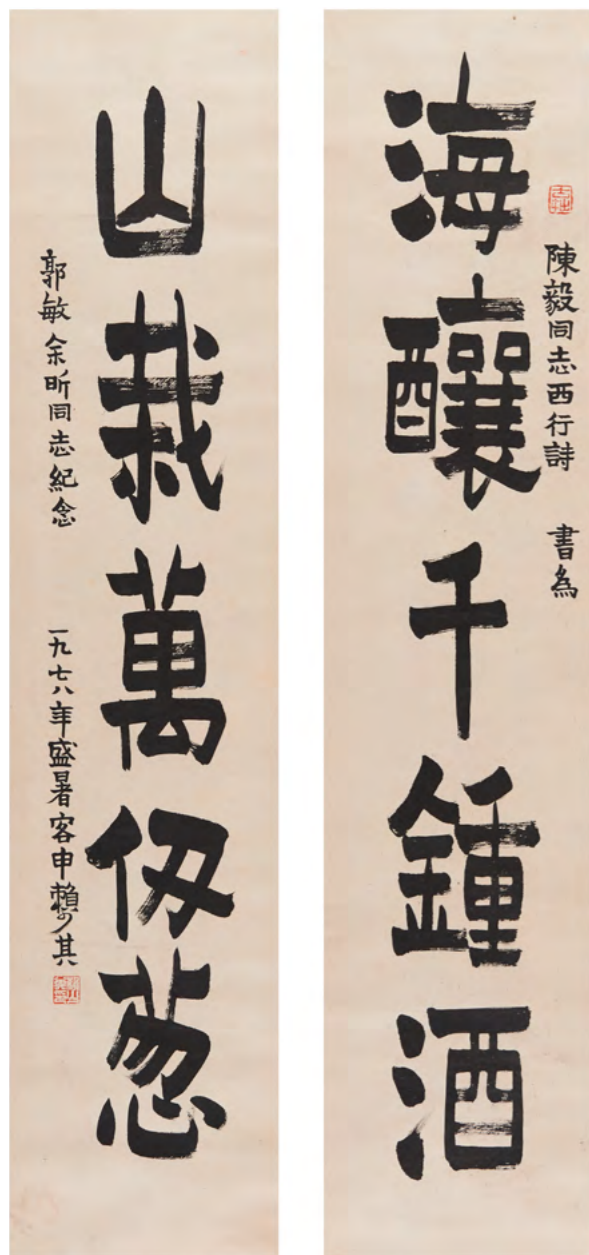 海釀千鍾酒
陳毅同志西行詩 書爲
山栽萬仞葱
郭敏余昕同志紀念 一九七八年盛暑客申賴少其